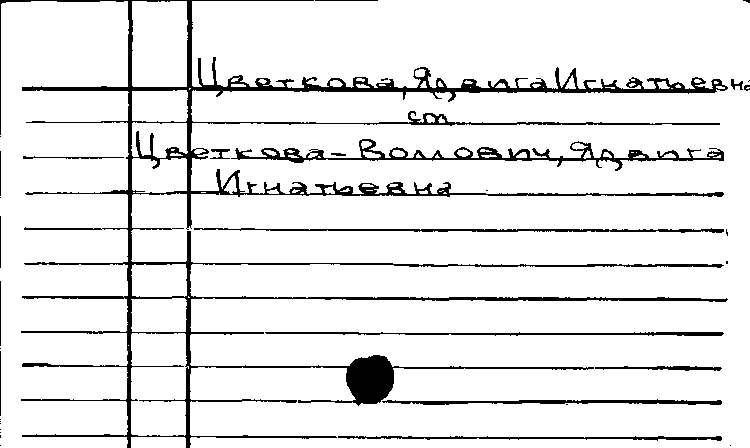 Цветкова, Ядвига Игнатьевна
см
Цветкова-Воллович, Ядвига
Игнатьевна